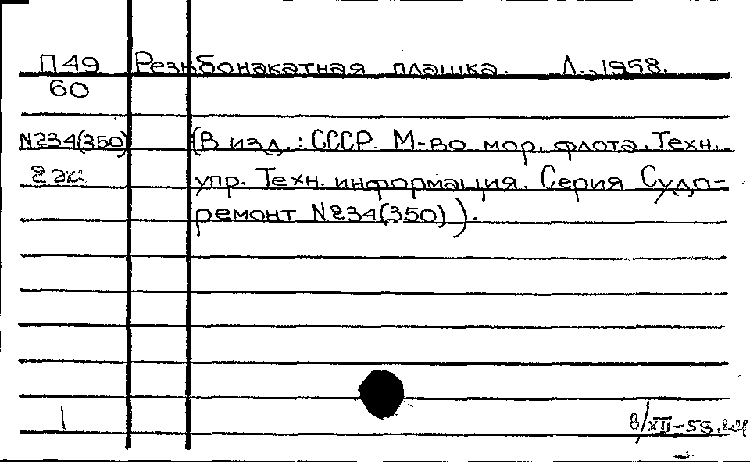 П49 Резьбонакатная плашка. Л., 1958.
60
N234(350) (В изд.: СССР М-во мор. флота. Техн.
2 эк. упр. Техн. информация. Серия Судо=
ремонт N234(350)).
8/XII-58